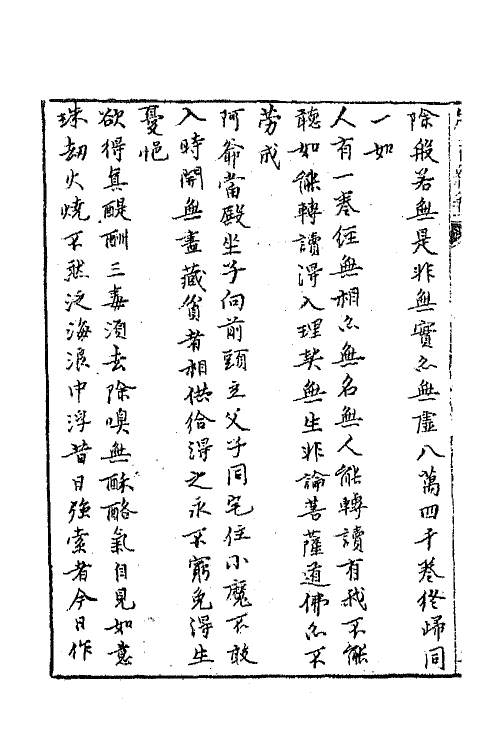 除般若無是非無實亦無虛八萬四千卷終歸同
一如
人有一卷經無相亦無名無人能轉讀有我不能
聽如能轉讀得入理契無生非論菩薩道佛亦不
勞成
阿爺當殿坐子向前頭立父子同宅住小魔不敢
入時開無盡藏貧者相供給得之永不窮免得生
憂悒
欲得真醍酬三毒須去除嗅無酥酪氣自見如意
珠劫火燒不然泛海浪中浮昔日強索者今日作